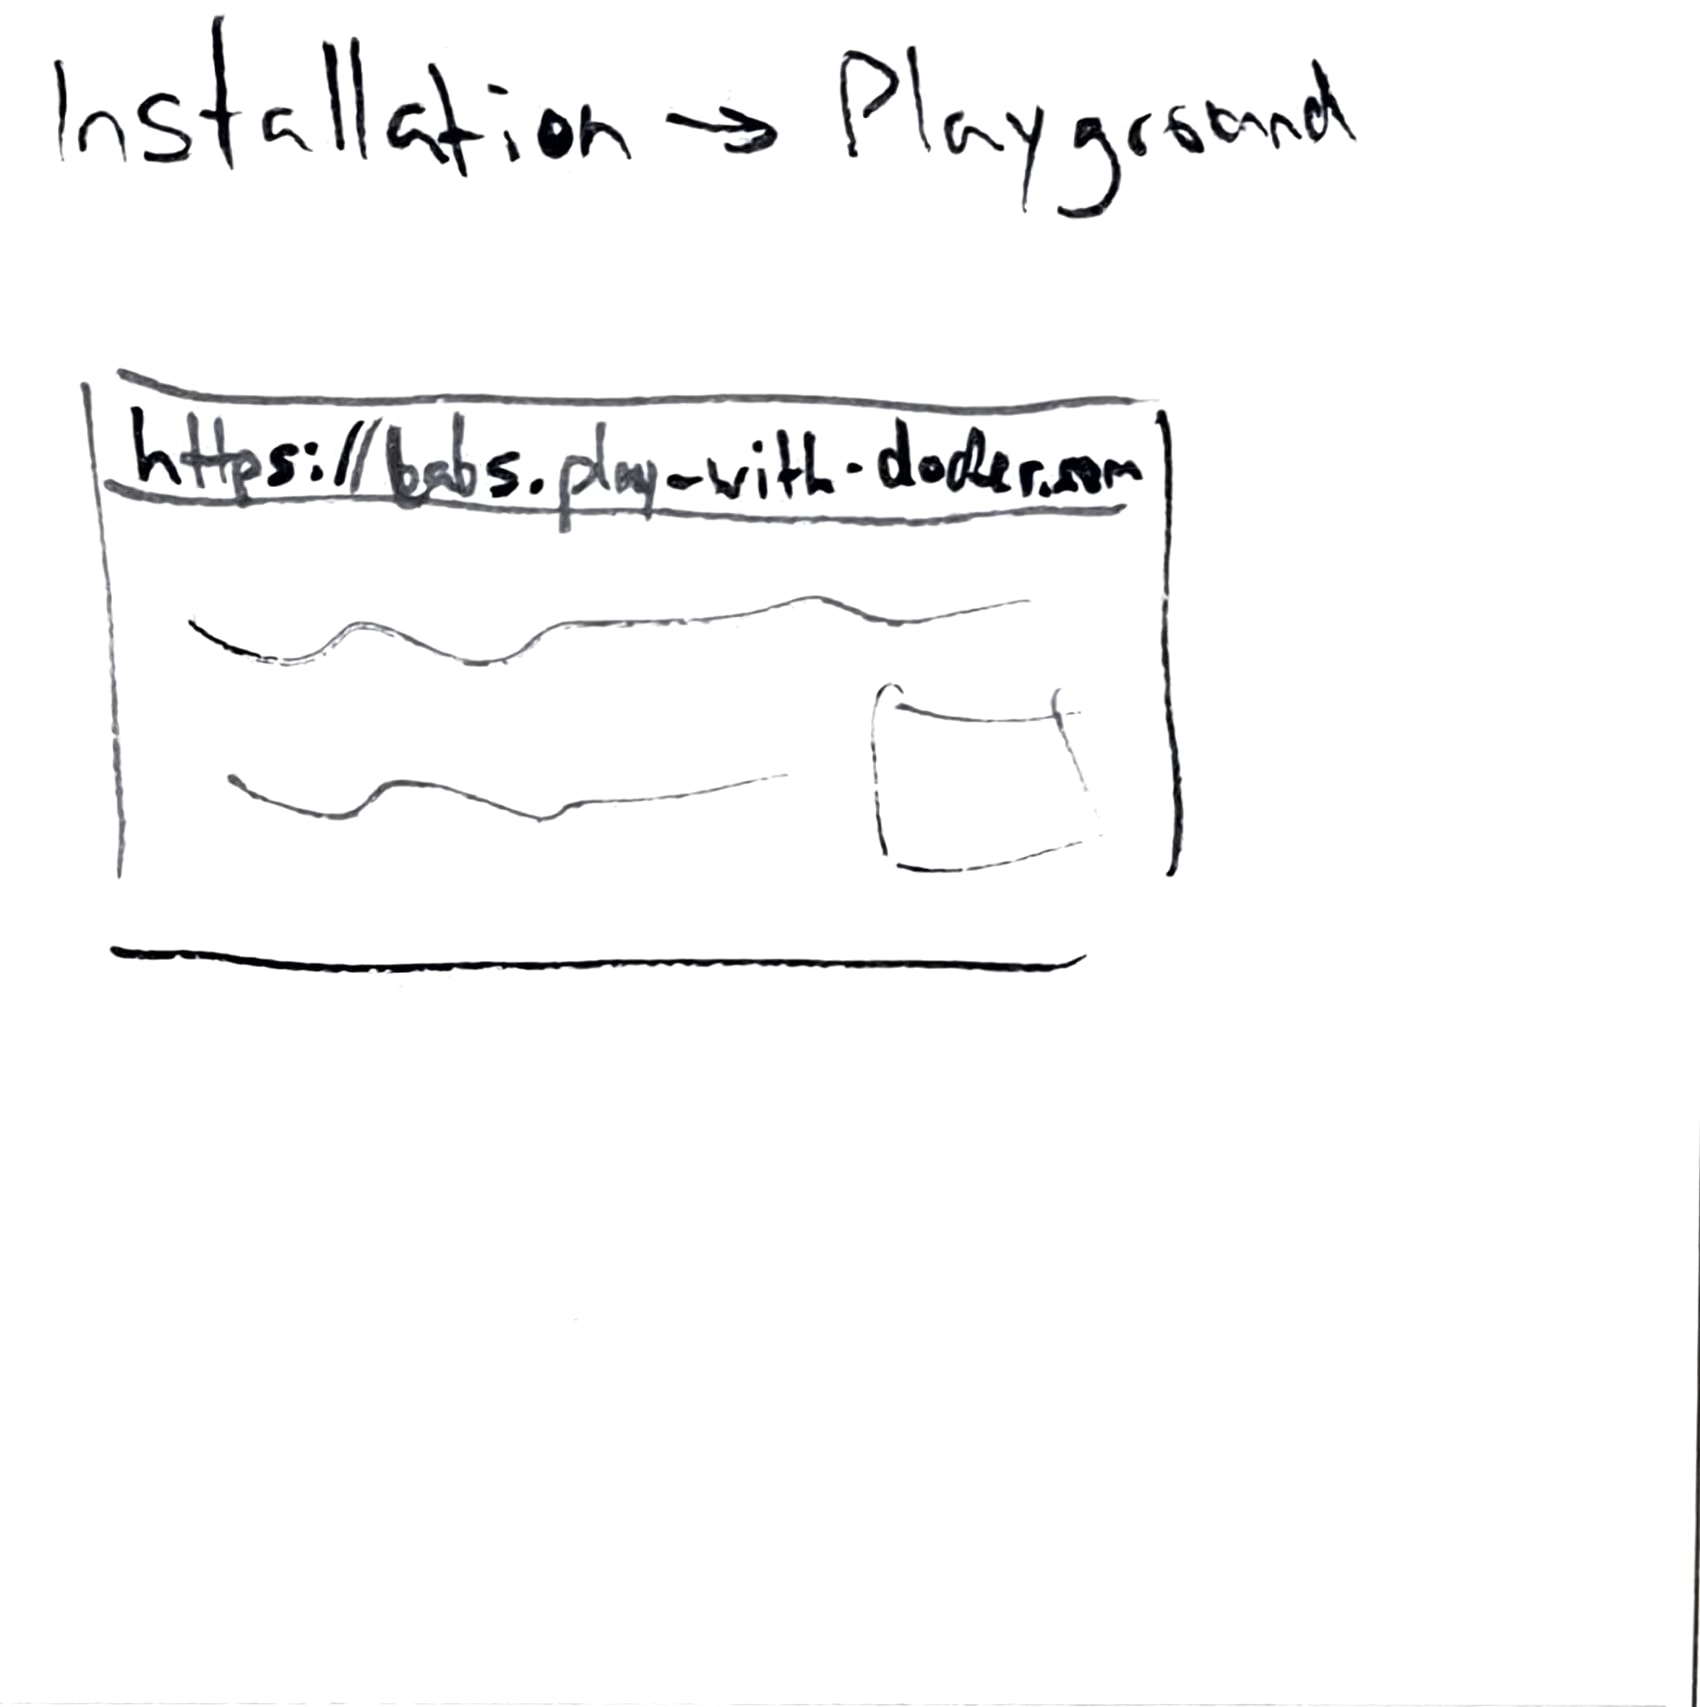 Installation → Playground
https://babs.play-with-docker.com